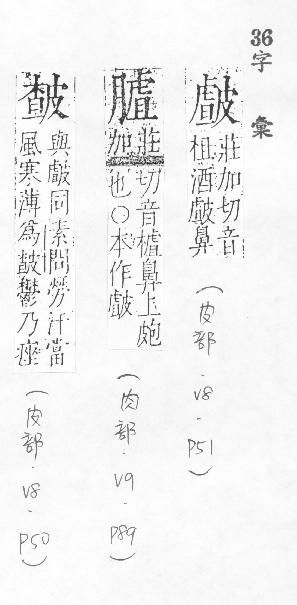 36字 彙
皻
莊加切音
柤酒皻鼻
(皮部.V8.P51)
䐒
莊切音樝鼻上皰
加也○本作皻
(肉部.V9.P89)
皶
與皻同素問勞汗當
風寒薄爲皶鬱乃痤
(皮部.V8.P50)